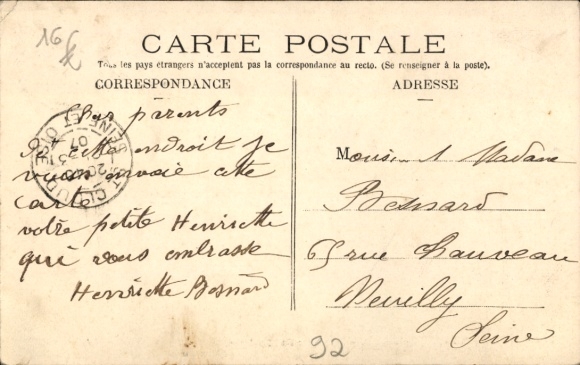 16
CARTE POSTALE
Tous les pays étrangers n'acceptent pas la correspondance au recto. (Se renseigner à la poste).
CORRESPONDANCE
ADRESSE
Cher parents
endroit je
vous envoie cette
carte
votre petite Henriette
qui vous embrasse
Henriette Besnard
ST-CLOUD
SEINE ET OISE
07
Monsieur & Madame
Besnard
65 rue Chauveau
Neuilly
Seine
92